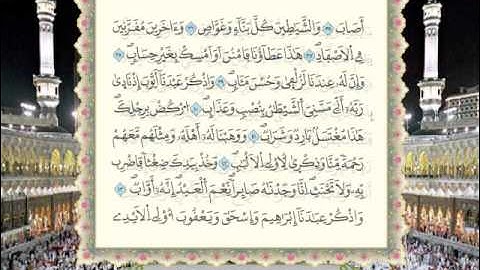 أَصَابَ ﴿٣٦﴾ وَالشَّيَاطِينَ كُلَّ بَنَّاءٍ وَغَوَّاصٍ ﴿٣٧﴾ وَءَاخَرِينَ مُقَرَّنِينَ
فِي الْأَصْفَادِ ﴿٣٨﴾ هَٰذَا عَطَاؤُنَا فَامْنُنْ أَوْ أَمْسِكْ بِغَيْرِ حِسَابٍ ﴿٣٩﴾
وَإِنَّ لَهُ عِندَنَا لَزُلْفَىٰ وَحُسْنَ مَـَٔابٍ ﴿٤٠﴾ وَاذْكُرْ عَبْدَنَا أَيُّوبَ إِذْ نَادَىٰ
رَبَّهُ أَنِّي مَسَّنِيَ الشَّيْطَانُ بِنُصْبٍ وَعَذَابٍ ﴿٤١﴾ ارْكُضْ بِرِجْلِكَ
هَٰذَا مُغْتَسَلٌ بَارِدٌ وَشَرَابٌ ﴿٤٢﴾ وَوَهَبْنَا لَهُ أَهْلَهُ وَمِثْلَهُم مَّعَهُمْ
رَحْمَةً مِّنَّا وَذِكْرَىٰ لِأُولِي الْأَلْبَابِ ﴿٤٣﴾ وَخُذْ بِيَدِكَ ضِغْثًا فَاضْرِب
بِّهِ وَلَا تَحْنَثْ إِنَّا وَجَدْنَاهُ صَابِرًا نِّعْمَ الْعَبْدُ إِنَّهُ أَوَّابٌ ﴿٤٤﴾
وَاذْكُرْ عِبَادَنَا إِبْرَاهِيمَ وَإِسْحَاقَ وَيَعْقُوبَ أُولِي الْأَيْدِي